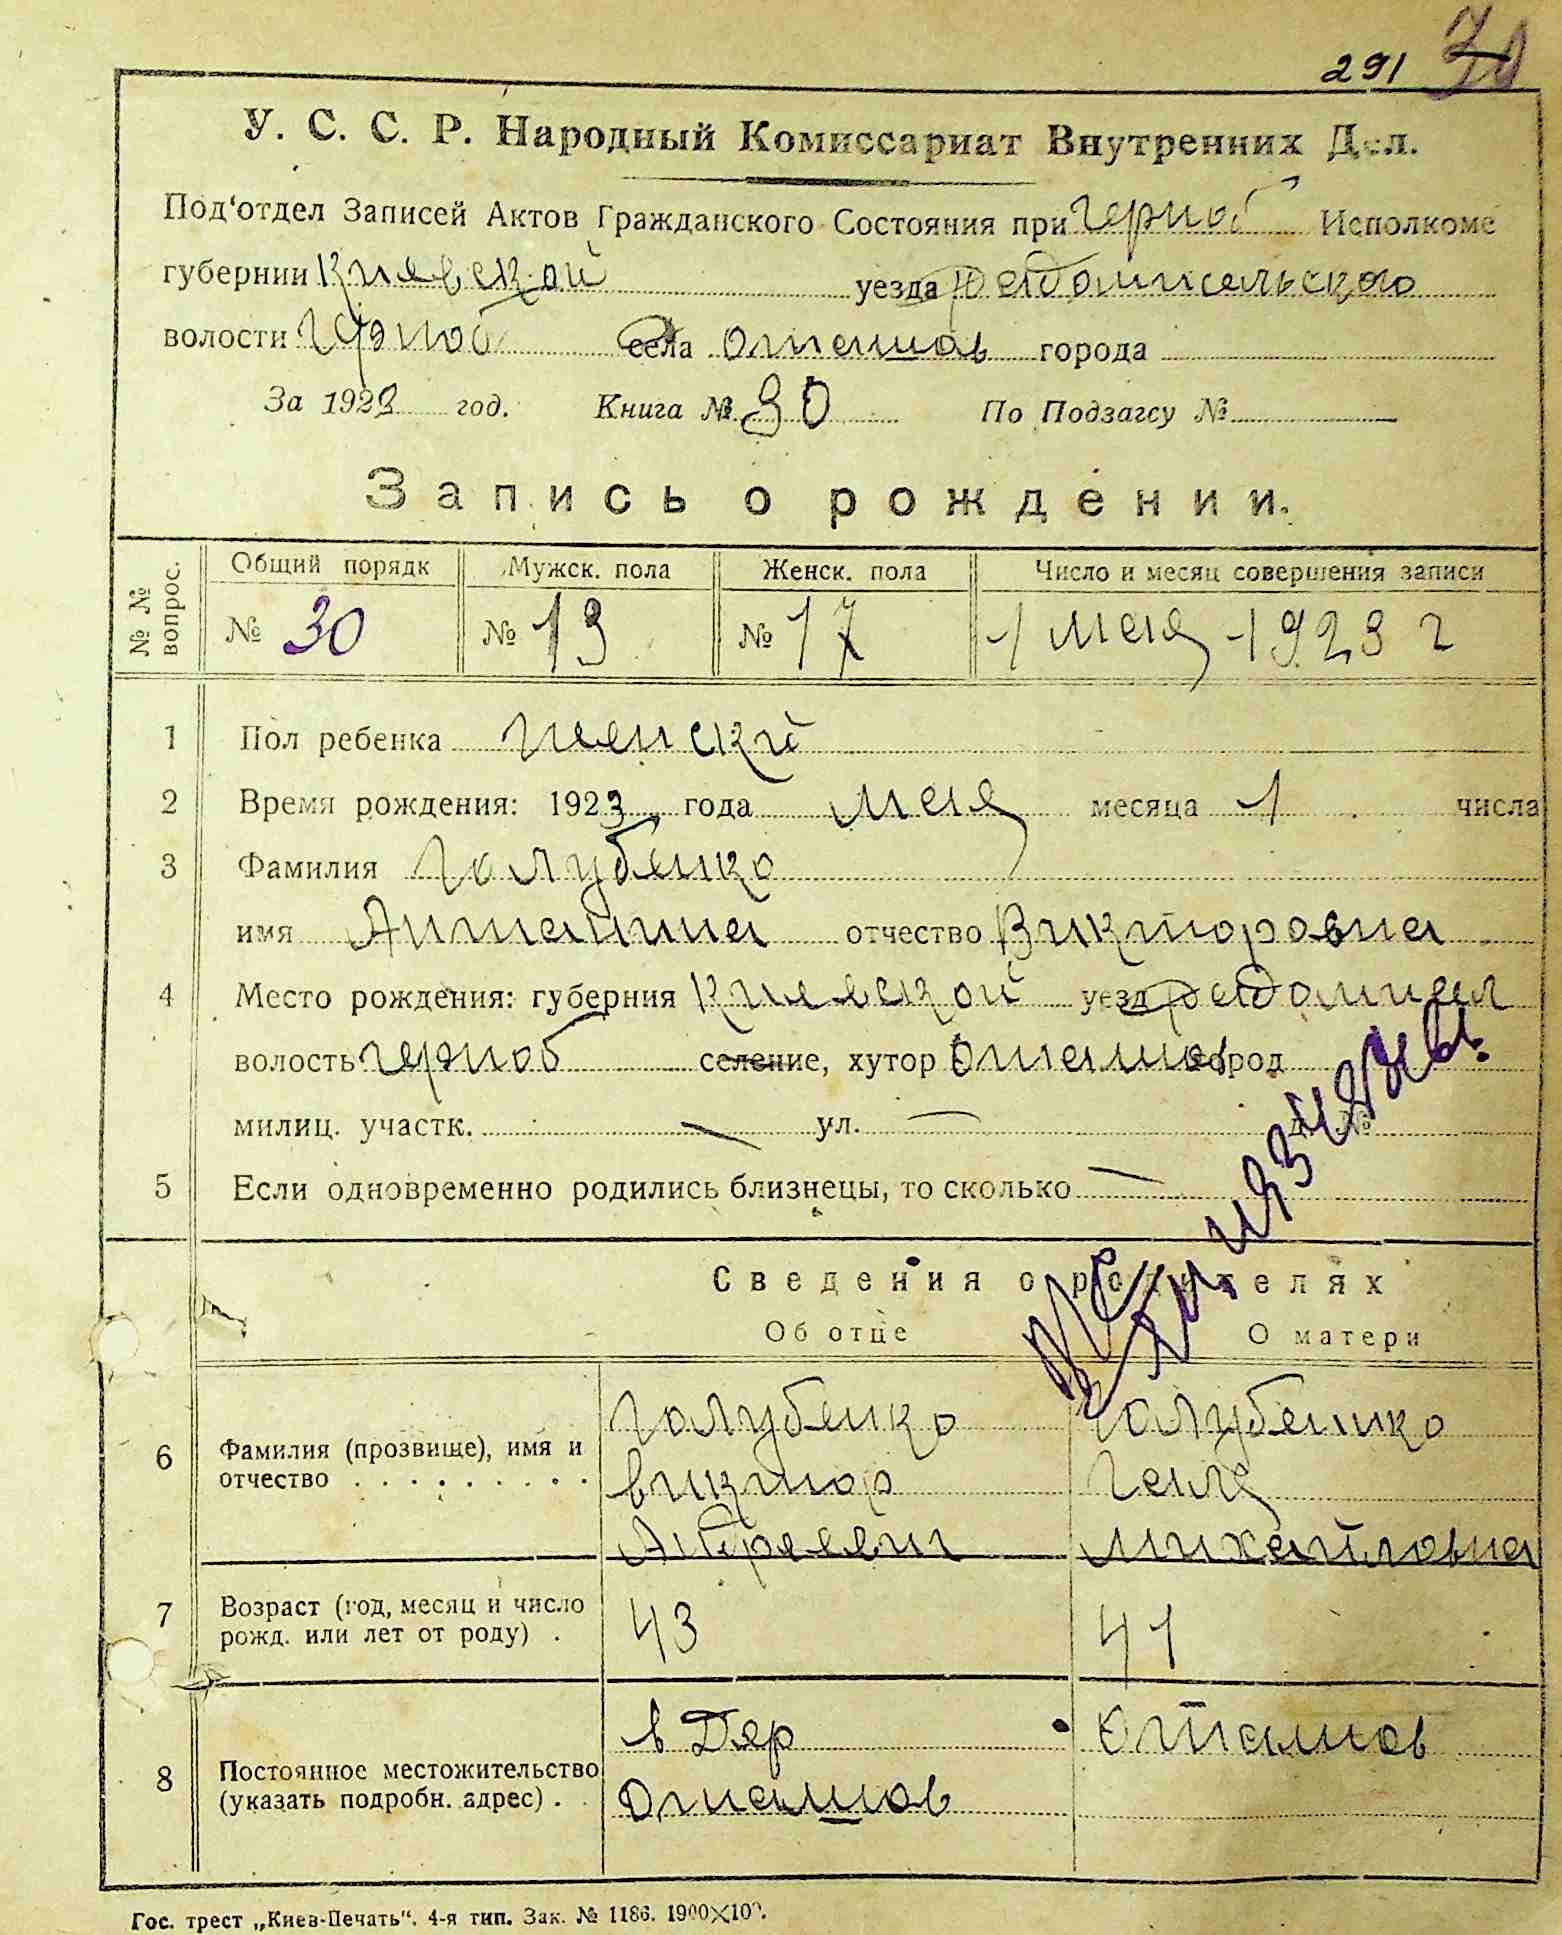 291 30
У. С. С. Р. Народный Комиссариат Внутренних Дел.
Под‘отдел Записей Актов Гражданского Состояния при Черноб Исполкоме
губернии Киевской уезда Радомисельского
волости Черноб села Оташов города
За 1923 год. Книга № 30 По Подзагсу №
Запись о рождении.
№ № вопрос. Общий порядк Мужск. пола Женск. пола Число и месяц совершения записи
№ 30 № 13 № 17 1 мая 1923 г
1 Пол ребенка женский
2 Время рождения: 1923 года мая месяца 1 числа
3 Фамилия Голубенко
имя Антанина отчество Викторовна
4 Место рождения: губерния Киевской уезд Радомисел
волость Черноб селение, хутор Оташов город
милиц. участк. — ул. — д. №
5 Если одновременно родились близнецы, то сколько —
Сведения о родителях
Об отце О матери
6 Фамилия (прозвище), имя и отчество Голубенко Голубенко
Виктор
Михайловна
7 Возраст (год, месяц и число рожд. или лет от роду) . 43 41
8 Постоянное местожительство (указать подробн. адрес) . в Дер Оташов
Оташов
Гос. трест „Киев-Печать“. 4-я тип. Зак. № 1186. 1900×100.